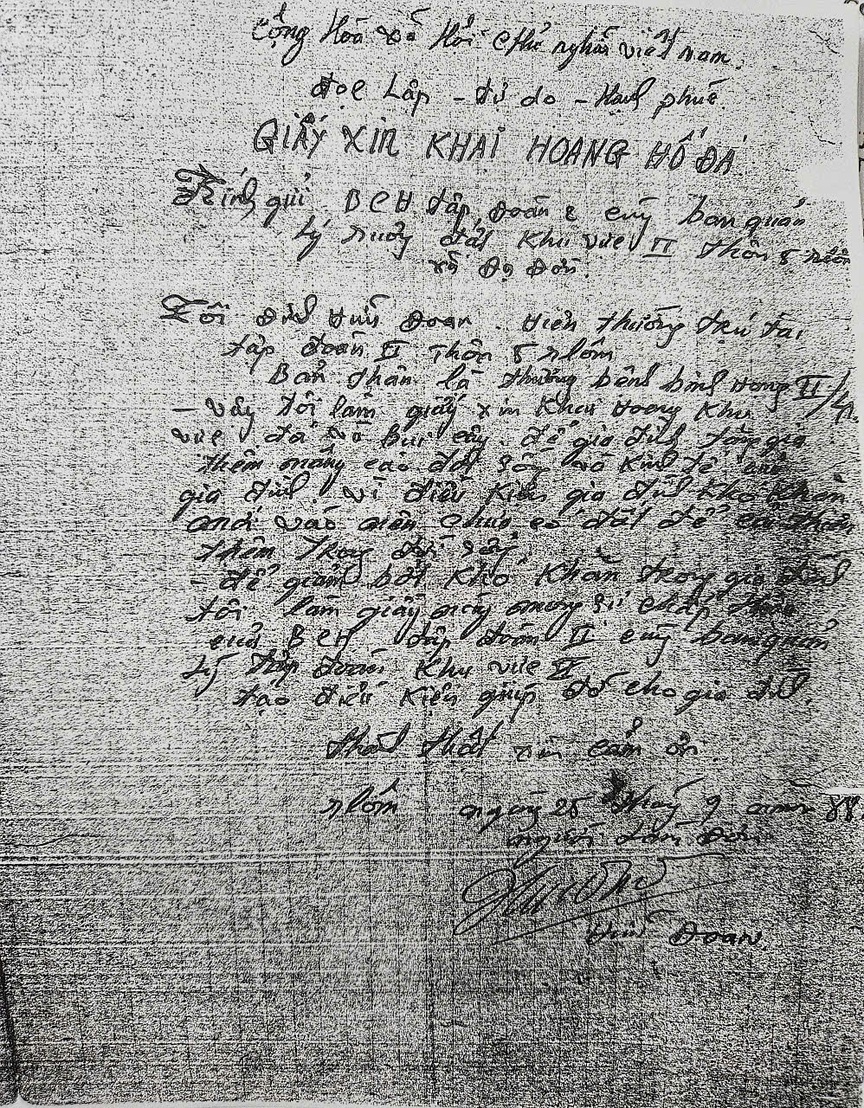 Cộng Hòa xã Hội chủ nghĩa việt nam
Độc Lập - Tự do - Hạnh phúc
GIẤY XIN KHAI HOANG HỐ ĐÁ
Kính gửi BCH tập đoàn 2 cùng ban quản
lý ruộng đất Khu vực II thôn 5 nlôm
xã Đạ Đờn.
Tôi Đinh Hữu Đoan. Hiện thường trú tại
tập đoàn II Thôn 5 nlôm
Bản thân là thương bệnh binh Hạng II/4
- vậy tôi làm giấy xin Khai Hoang Khu
vực đá và bụi cây. để gia đình tăng gia
thêm nâng cao đời sống và Kinh tế
gia đình. vì điều Kiện gia đình Khó Khăn
mới vào nên chưa có đất để cải thiện
thêm trong đời sống.
- để giảm bớt Khó Khăn trong gia đình
tôi làm giấy này mong sự chấp
của BCH tập đoàn II cùng ban quản
lý tập đoàn Khu vực II
tạo điều Kiện giúp đỡ cho gia đình.
thành thật xin cảm ơn.
nlôm ngày 25 tháng 9 năm 88.
người Làm Đơn
Hữu Đoan